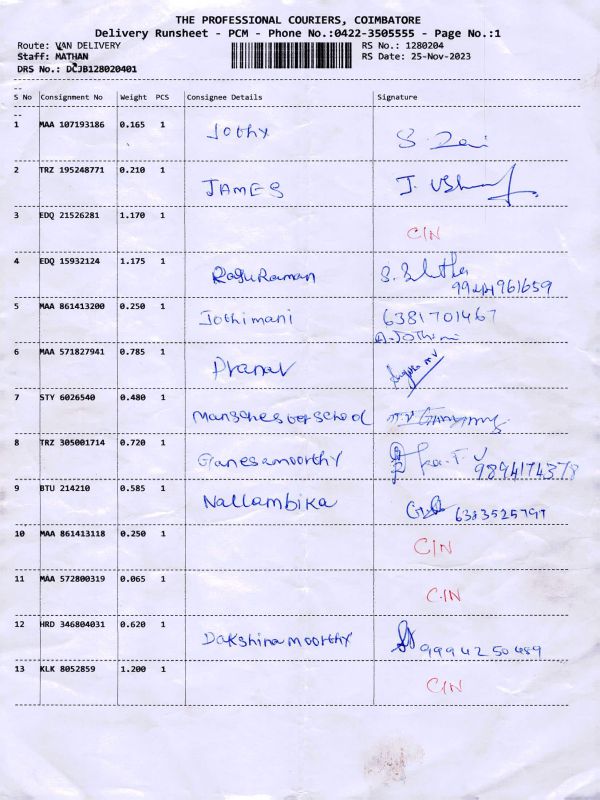 THE PROFESSIONAL COURIERS, COIMBATORE
Delivery Runsheet - PCM - Phone No.:0422-3505555 - Page No.:1
Route: VAN DELIVERY RS No.: 1280204
Staff: MATHAN RS Date: 25-Nov-2023
DRS No.: DCJB128020401
--
S No Consignment No Weight PCS Consignee Details Signature
--
1 MAA 107193186 0.165 1 Jothy
2 TRZ 195248771 0.210 1 JAMES
3 EDQ 21526281 1.170 1 C/N
4 EDQ 15932124 1.175 1 RaguRaman
5 MAA 861413200 0.250 1 Jothimani 6381701467
6 MAA 571827941 0.785 1 Pranav
7 STY 6026540 0.480 1 Manschester School
8 TRZ 305001714 0.720 1 Ganesamoorthy 9894174378
9 BTU 214210 0.585 1 Nallambika 6383525797
10 MAA 861413118 0.250 1 C/N
11 MAA 572800319 0.065 1 C/N
12 HRD 346804031 0.620 1 Dakshinamoorthy 9994250489
13 KLK 8052859 1.200 1 C/N